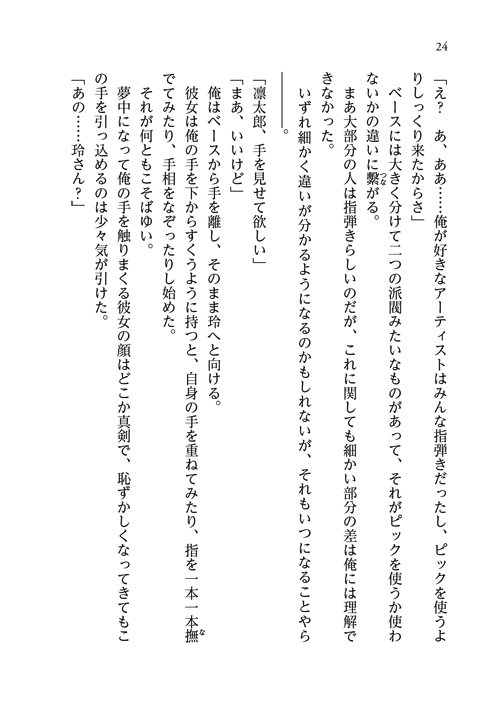 24
「え？　あ、ああ……俺が好きなアーティストはみんな指弾きだったし、ピックを使うよ
りしっくり来たからさ」
ベースには大きく分けて二つの派閥みたいなものがあって、それがピックを使うか使わ
ないかの違いに繋がる。
つな
まあ大部分の人は指弾きらしいのだが、これに関しても細かい部分の差は俺には理解で
きなかった。
いずれ細かく違いが分かるようになるのかもしれないが、それもいつになることやら
――――。
「凛太郎、手を見せて欲しい」
「まあ、いいけど」
俺はベースから手を離し、そのまま玲へと向ける。
彼女は俺の手を下からすくうように持つと、自身の手を重ねてみたり、指を一本一本撫
な
でてみたり、手相をなぞったりし始めた。
それが何ともこそばゆい。
夢中になって俺の手を触りまくる彼女の顔はどこか真剣で、恥ずかしくなってきてもこ
の手を引っ込めるのは少々気が引けた。
「あの……玲さん？」